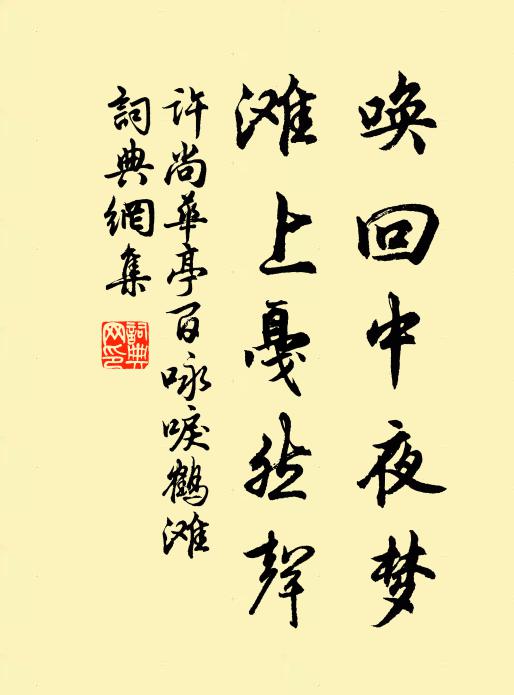 唤回中夜梦
滩上戛然声
许尚华亭百咏唳鹤滩
詞典網集
詞典
网印